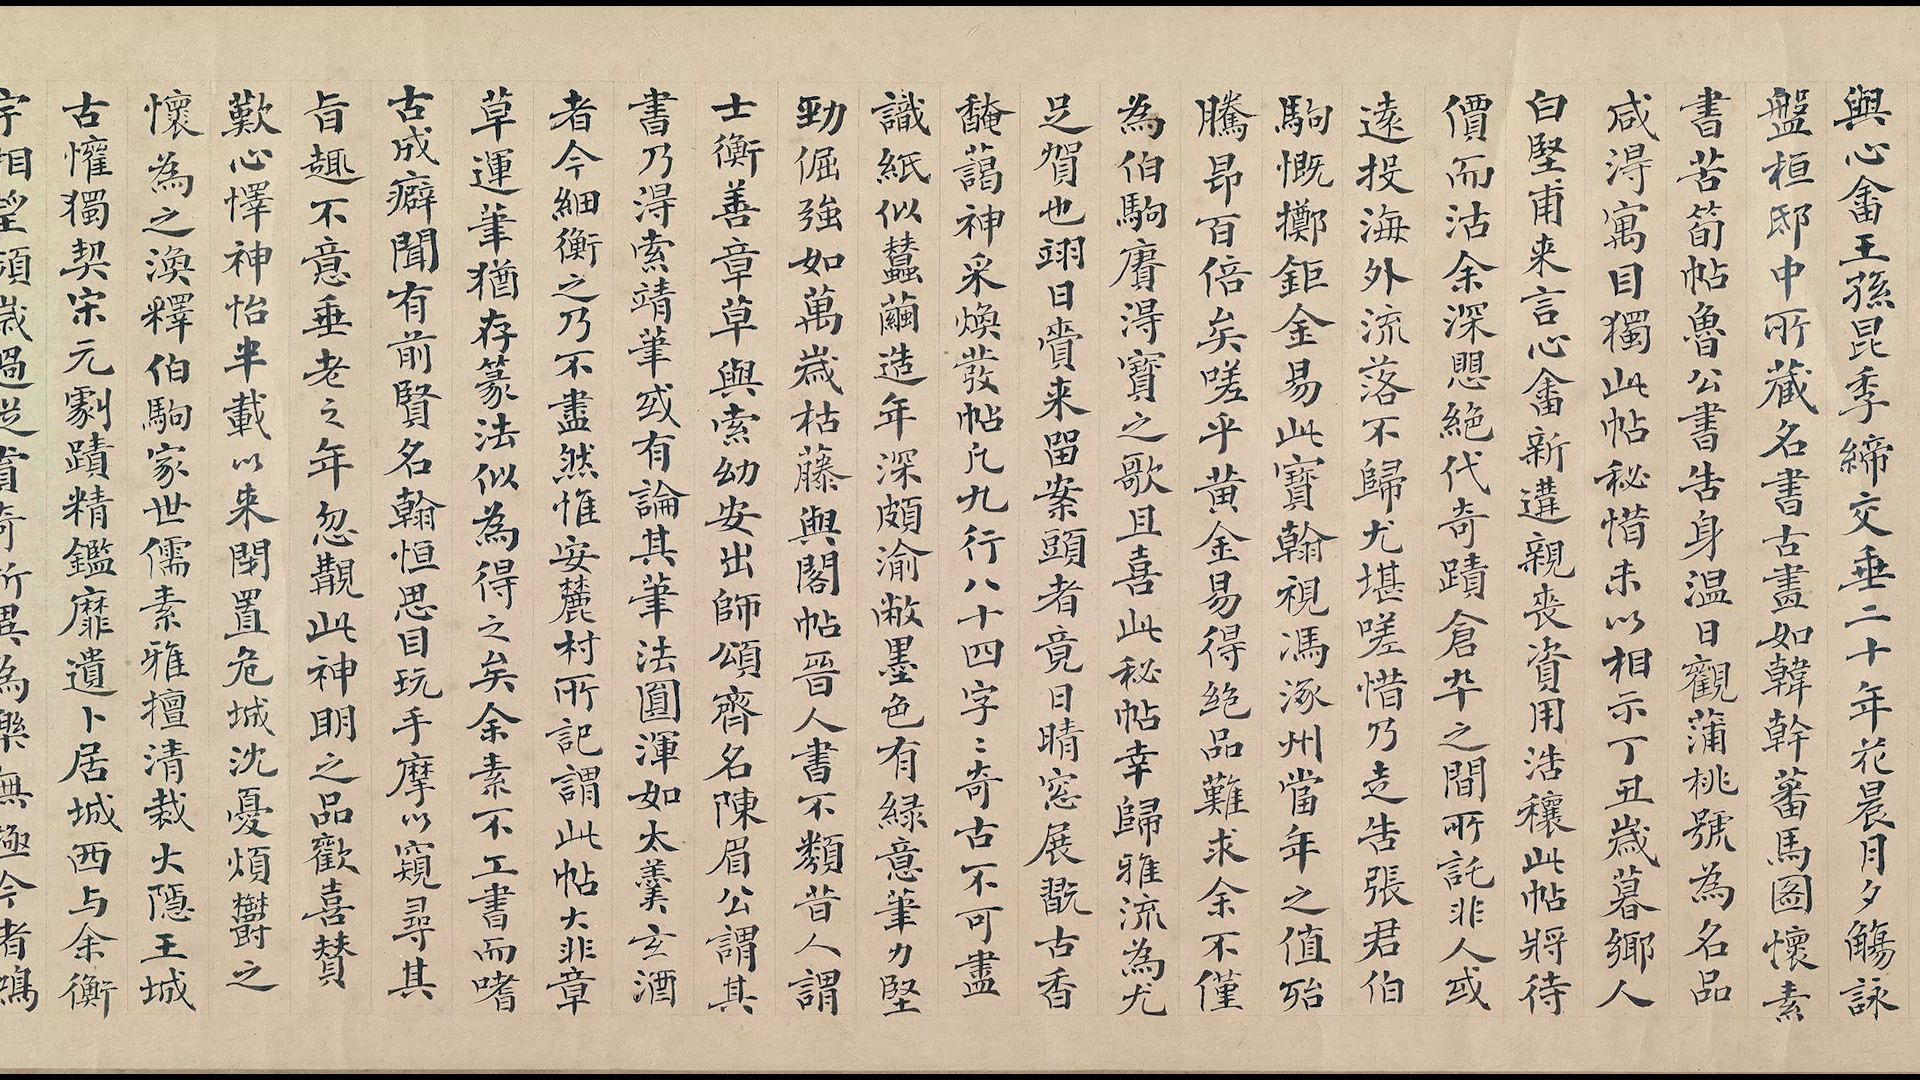 與心畬王孫昆季締交垂二十年花晨月夕觴詠
盤桓邸中所藏名書古畫如韓幹蕃馬圖懷素
書苦筍帖魯公書告身溫日觀蒲桃號為名品
咸淂寓目獨此帖秘惜未以相示丁丑歲暮鄉人
白堅甫来言心畬新遘親喪資用浩穰此帖將待
價而沽余深恐絕代奇蹟倉卒之間所託非人或
遠投海外流落不歸尤堪嗟惜乃走告張君伯
駒慨擲鉅金易此寶翰視馮涿州當年之值殆
騰昂百倍矣嗟乎黄金易得絶品難求余不僅
為伯駒賡淂寶之歌且喜此秘帖幸歸雅流為尤
足賀也翊日賫来留案頭者竟日晴窓展翫古香
馣藹神采煥發帖凡九行八十四字〻奇古不可盡
識紙似蠶繭造年深頗渝敝墨色有緑意筆力堅
勁倔強如萬歲枯藤與閣帖晉人書不類昔人謂
士衡善章草與索幼安出師頌齊名陳眉公謂其
書乃淂索靖筆或有論其筆法圓渾如太羹玄酒
者今細衡之乃不盡然惟安麓村所記謂此帖大非章
草運筆猶存篆法似為得之矣余素不工書而嗜
古成癖聞有前賢名翰恒思目玩手摩以窺尋其
旨趣不意垂老之年忽覩此神朙之品歡喜贊
歎心懌神怡半載以来閉置危城沈憂煩欝之
懷為之渙釋伯駒家世儒素雅擅清裁大隱王城
古懽獨契宋元劇蹟精鑑靡遺卜居城西与余衡
宇相望頻歲過從賞奇析異為樂無極今者鴻